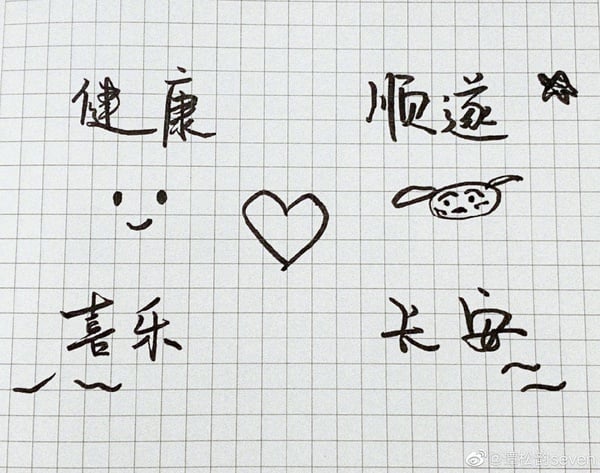 健康 顺遂
喜乐 长安
@谭松韵seven